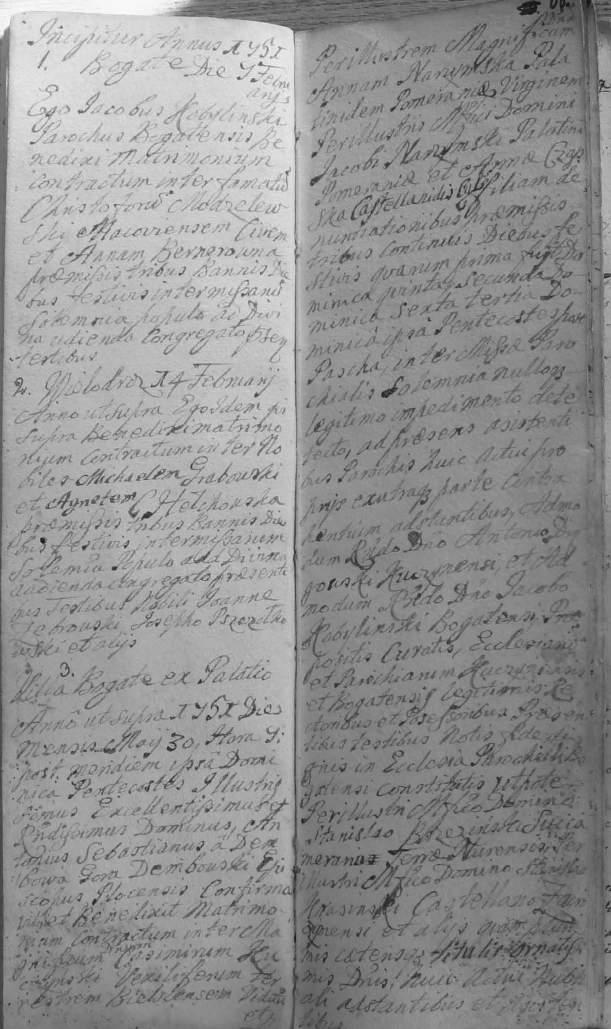 Incipitur Annus 1751
1.
Bogate Die 7 Febru
arij
Ego Jacobus Kobylinski
Parochus Bogatensis Be
nedixi Matrimonium
contractum inter famatū
Christoforū Modzelew
ski Macoviensem Civem
et Annam Bernerowna
præmissis tribus Bannis Die
bus festivis intermissarū
Solemnia populo ad Divi
na audienda Congregato præsen
testibus
2. Wielodroz 14 Februarij
Anno ut supra Ego Idem qui
supra Benedixi matrimo
nium Contractum inter No
biles Michaelem Grabowski
et Agnetem Chelchowska
præmissis tribus Bannis Die
bus festivis intermissarum
Solemia Populo ad Divina
audienda congregato præsenti
bus testibus Nobili Joanne
Zebrowski Josepho
et alijs
3.
Villa Bogate ex Palatio
Anno ut supra 1751 Dies
Mensis Maij 30. Hora
post meridiem ipsa Domi
nica Pentecostes Illustris
simus Excellentissimus et
Rndissimus Dominus, An
tonius Sebastianus, a Dem
bowa Gora Dembowski Epi
scopus Plocensis Confirma
vit et Benedixit Matrimo
nium Contractum inter Ma
gnificum Casimirum Ku
czynski Vexilliferum Ter
restrem Bielscensem Viduū
et
Perillustrem Magnificam
Annam Narzymska Pala
tinidem Pomeraniæ Virginem
Perillustris Mfici Domini
Jacobi Narzymski Palatini
Pomeraniæ et Annæ Czap
ska Castellanidis Filiam de
nuntiationibus Præmissis
tribus continuis Diebus fe
stivis quarum prima fuit Do
minica quinta, secunda Do
minica sexta tertia Do
minica ipsa Pentecostes post
Pascha, inter Missæ Paro
chialis Solemnia nulloq
legitimo impedimento dete
tecto, ad præsens assistenti
bus Parochis huic actui pro
prijs ex utraq parte Contra
hentium adstantibus, Admo
dum Rndo Dno Antonio
Kuczynensi, et Ad
modum Rndo Dno Jacobo
Kobylinski Bogatensi Præ
positis Curatis, Ecclesiarū
et Parochiarum
et Bogatensis legitimis Re
ctoribus et Possessoribus Præsen
tibus testibus Notis fide di
gnis in Ecclesia Parochiali Bo
gatensi Constitutis Utpote
Perillustri Mfico Domino
Stanislao Brzezinski Judice
Terræ Nurensis Per
illustri Mfico Domino Stanislao
Krasinski Castellano
et alijs quam pluri
mis titulis ornatis
mis Dnis huic Actui Nupti
ali adstantibus et
tibus